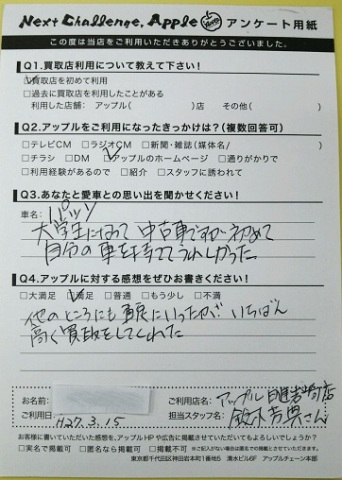 Next Challenge, Apple アンケート用紙
この度は当店をご利用いただきありがとうございました。
Q1.買取店利用について教えて下さい!
☑買取店を初めて利用
□過去に買取店を利用したことがある
利用した店舗: アップル( )店 その他( )
Q2.アップルをご利用になったきっかけは?(複数回答可)
□テレビCM □ラジオCM □新聞・雑誌(媒体名/ )
□チラシ □DM ☑アップルのホームページ □通りがかりで
□利用経験があるので □紹介 □スタッフに誘われて
Q3.あなたと愛車との思い出を聞かせください!
車名:
大学生になって 中古車ですが初めて
自分の車を持ててうれしかった
Q4.アップルに対する感想をぜひお書きください!
□大満足 ☑満足 □普通 □もう少し □不満
他のところにも 見にいったが いちばん
高く買取をしてくれた
お名前:
ご利用日: H27.3.15
ご利用店名: アップル 店
担当スタッフ名: 鈴木 さん
お客様に書いていただいた感想を、アップルHPや広告に掲載させていただいてもよろしいでしょうか?
□実名で掲載可 □匿名なら掲載可 □掲載不可
東京都千代田区神田岩本町1番地5 清水ビル6F アップルチェーン本部